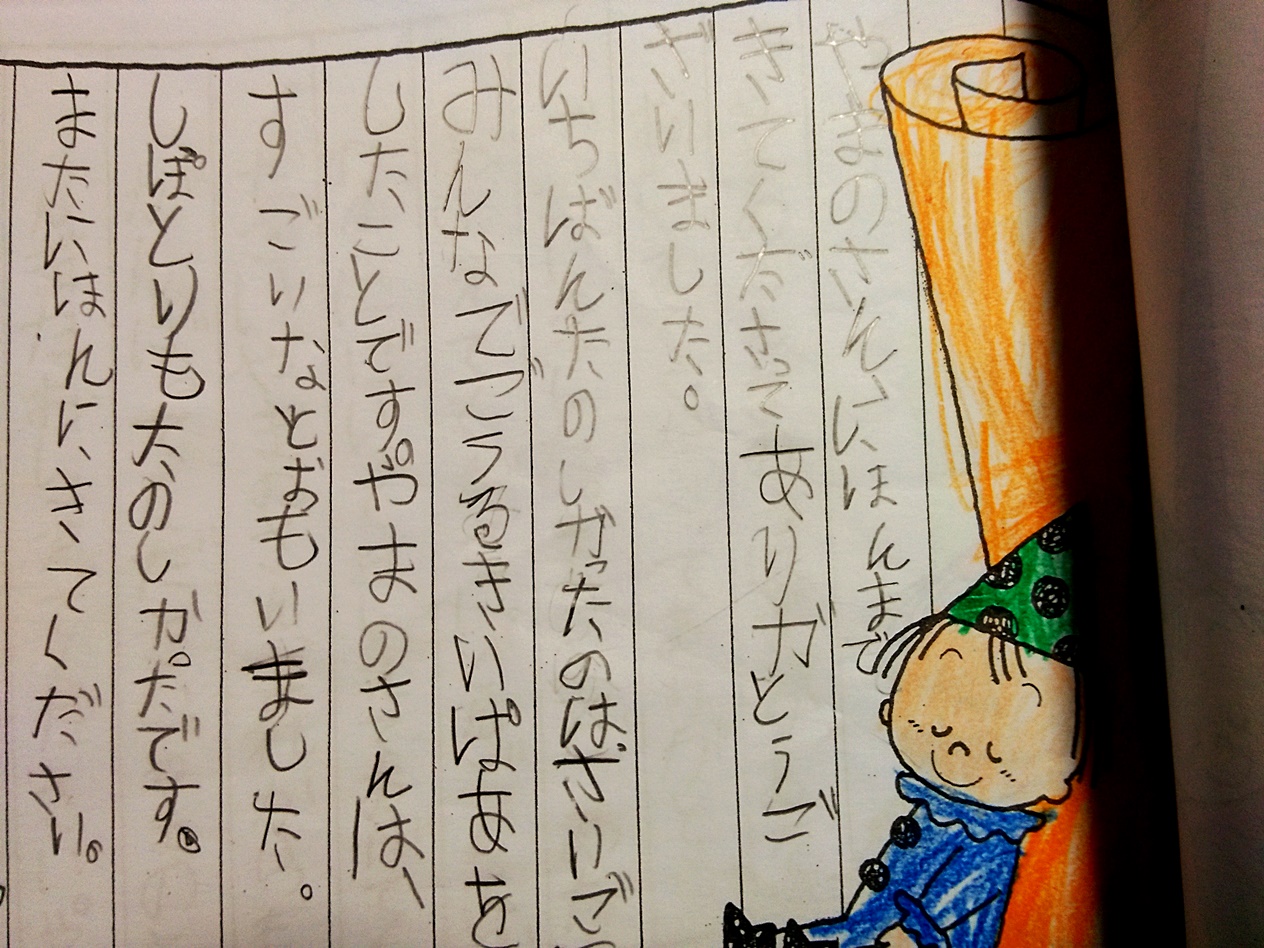 やまのさん、にほんまで
きてくださってありがとうご
ざいました。
いちばんたのしかったのはさいご
みんなでごうるきいぱあを
したことです。やまのさんは、
すごいなとおもいました。
しぽとりもたのしかったです。
またにほんにきてください。